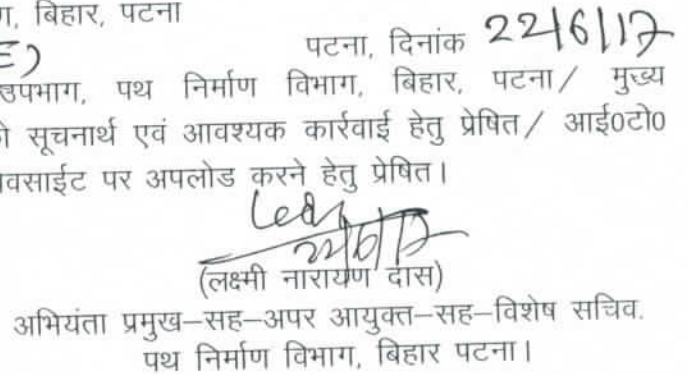 ग, बिहार, पटना
E)
पटना, दिनांक 22/6/17
उपभाग, पथ निर्माण विभाग, बिहार, पटना/ मुख्य
ो सूचनार्थ एवं आवश्यक कार्रवाई हेतु प्रेषित/ आई0टी0
वसाईट पर अपलोड करने हेतु प्रेषित।
22/6/17
(लक्ष्मी नारायण दास)
अभियंता प्रमुख–सह–अपर आयुक्त–सह–विशेष सचिव.
पथ निर्माण विभाग, बिहार पटना।